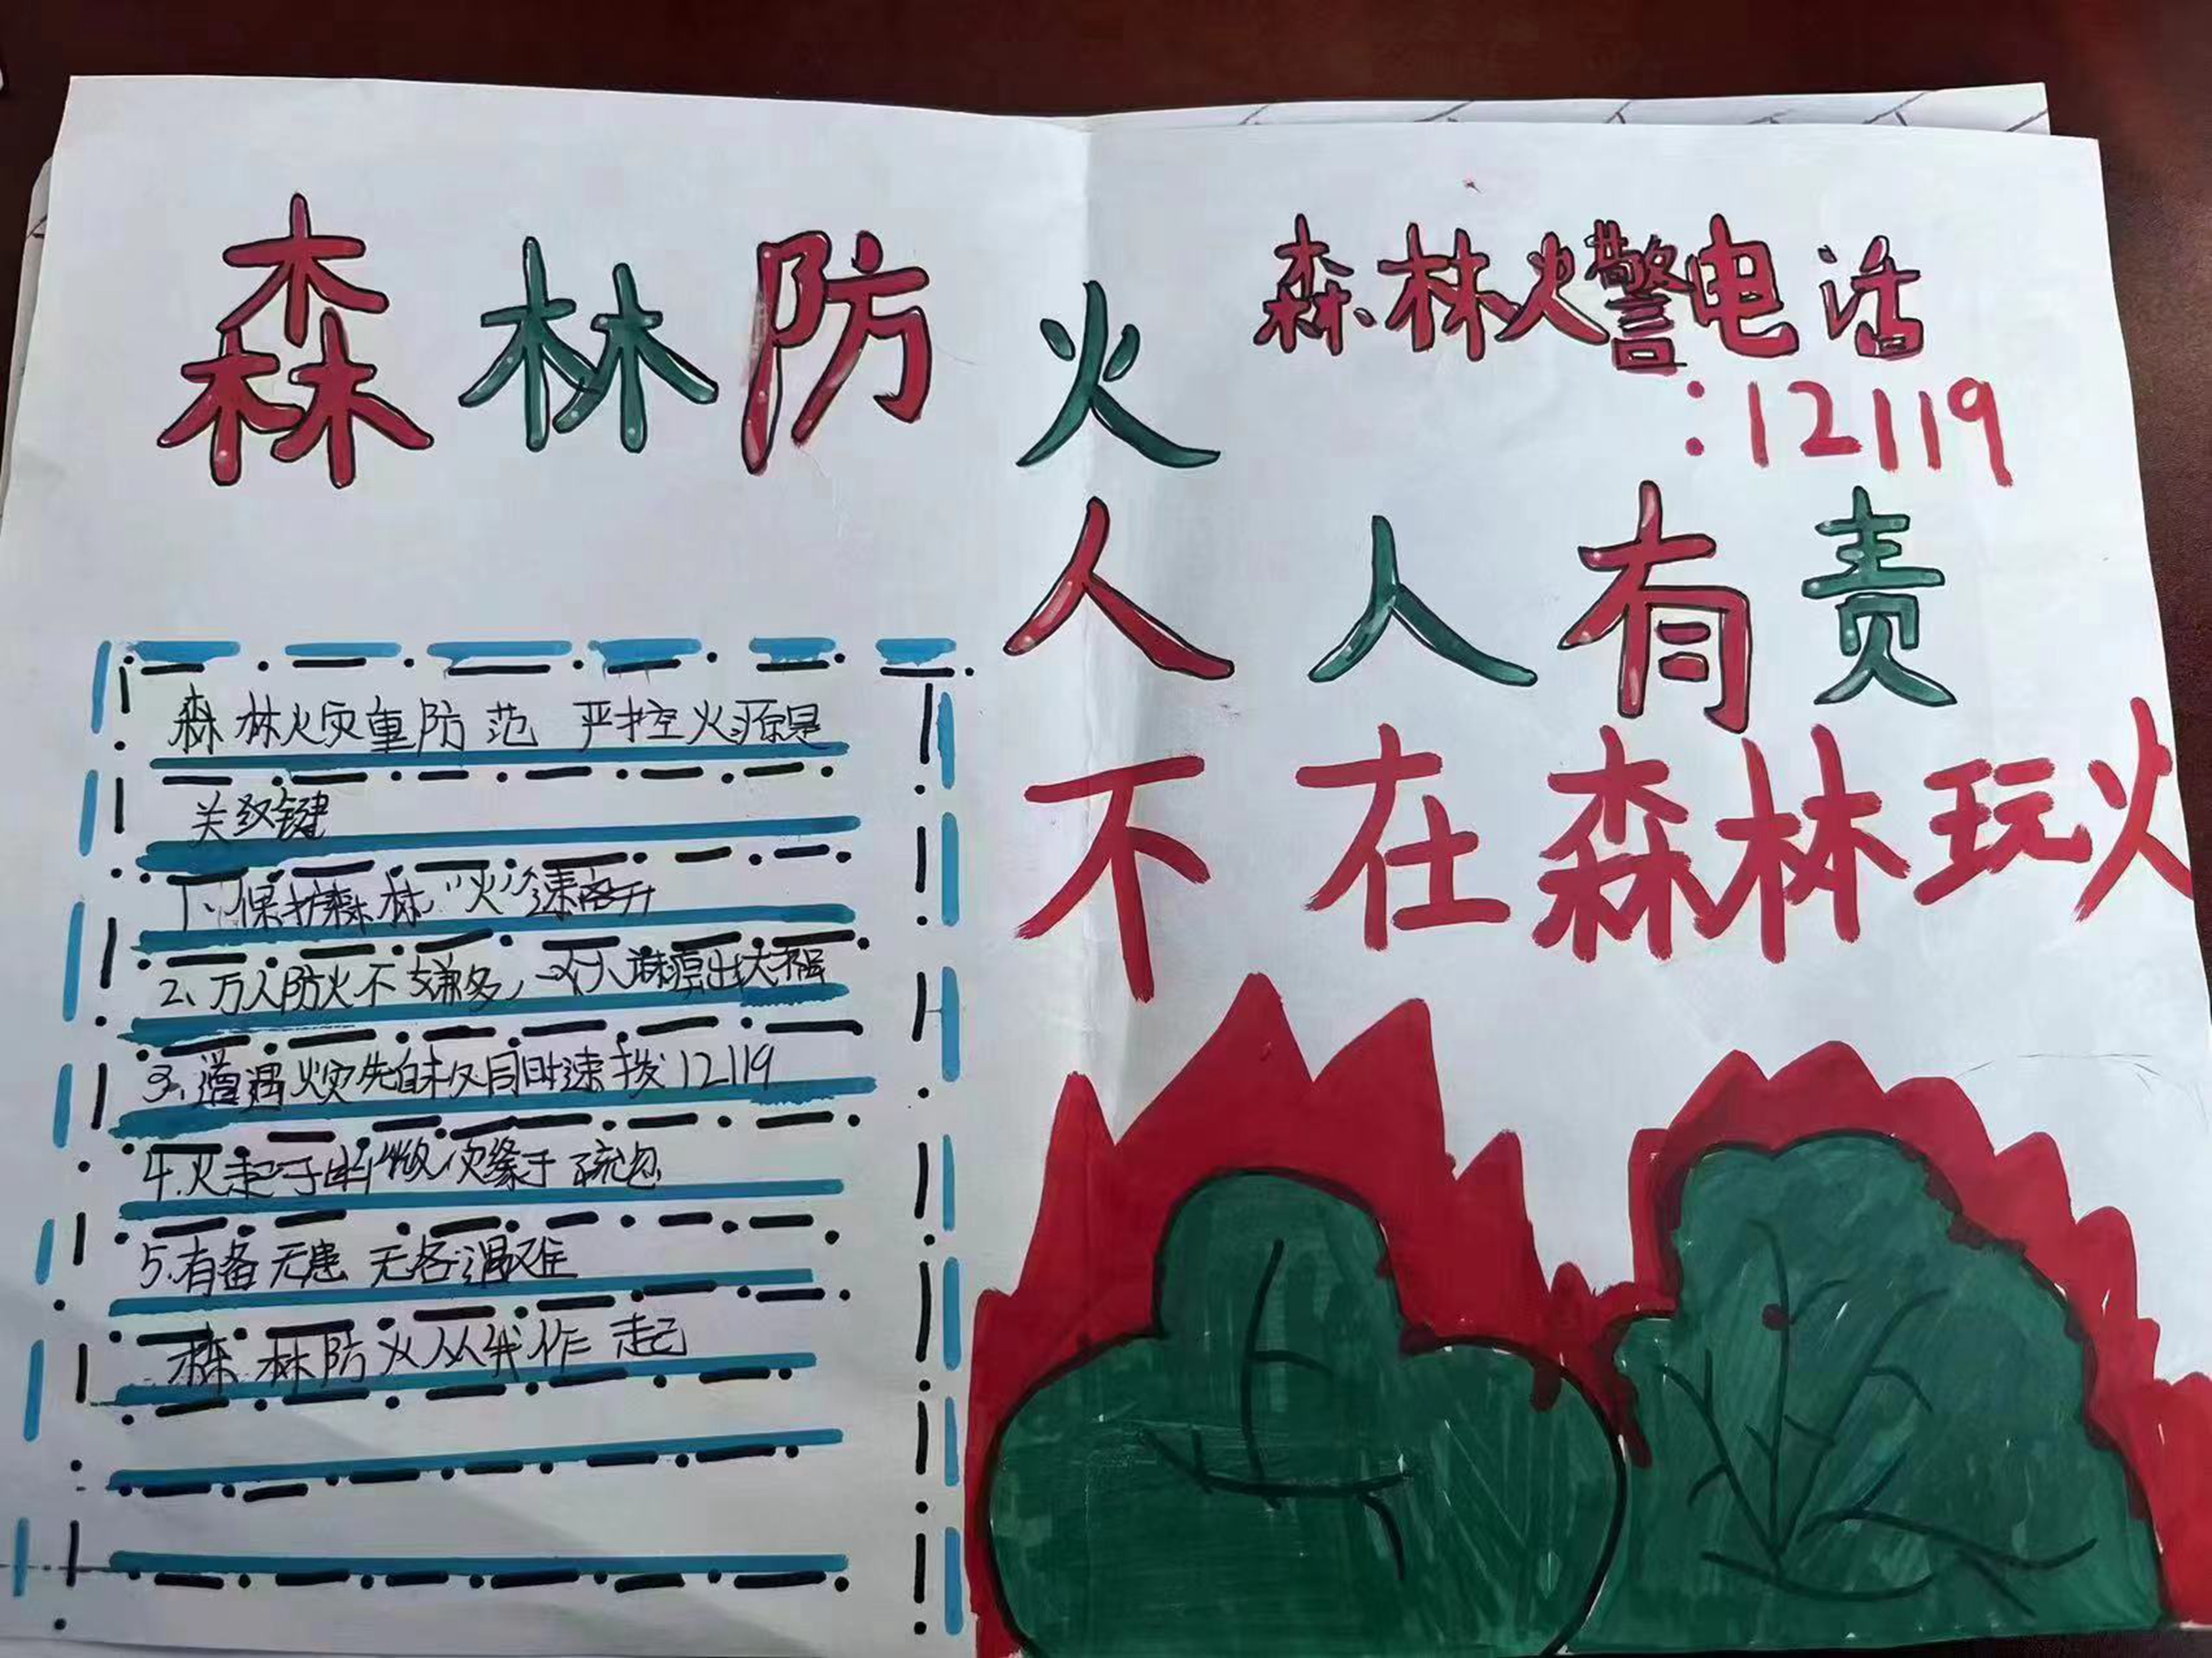 森林防火
森林火警电话
:12119
人人有责
不在森林玩火
森林火灾重防范 严控火源是
关键
1、保护森林,"火"速离开
2、万人防火不嫌多,一人疏忽出大祸
3、遭遇火灾先自救同时速拨12119
4.火起于 微 灾缘于疏忽
5.有备无患 无备遇难
森林防火从我作起